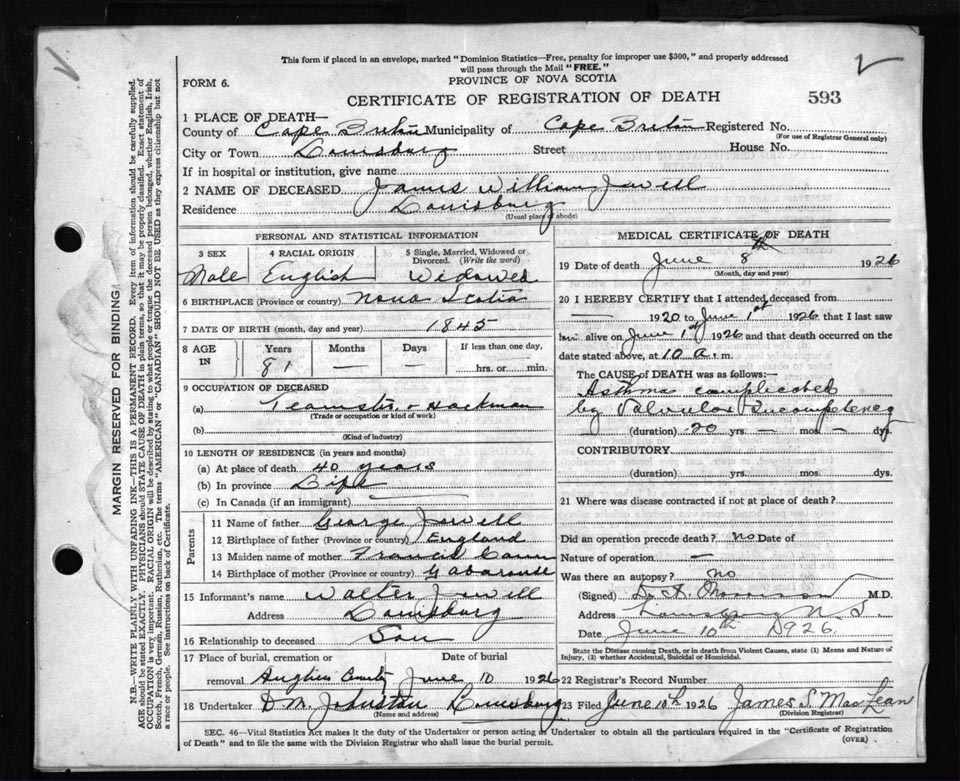 This form if placed in an envelope, marked "Dominion Statistics—Free, penalty for improper use $300," and properly addressed
will pass through the Mail "FREE."
FORM 6.
PROVINCE OF NOVA SCOTIA
CERTIFICATE OF REGISTRATION OF DEATH 593
1 PLACE OF DEATH—
County of Cape Breton Municipality of Cape Breton Registered No.
(For use of Registrar General only)
City or Town Louisburg Street House No.
If in hospital or institution, give name
2 NAME OF DECEASED James William Jewell
Residence Louisburg
(Usual place of abode)
PERSONAL AND STATISTICAL INFORMATION
3 SEX 4 RACIAL ORIGIN 5 Single, Married, Widowed or
Divorced. (Write the word)
Male English Widowed
6 BIRTHPLACE (Province or country) Nova Scotia
7 DATE OF BIRTH (month, day and year) 1845
8 AGE IN Years Months Days If less than one day,
81 — — hrs. or min.
9 OCCUPATION OF DECEASED
(a) Teamster & Hackman
(Trade or occupation or kind of work)
(b)
(Kind of industry)
10 LENGTH OF RESIDENCE (in years and months)
(a) At place of death 40 years
(b) In province Life
(c) In Canada (if an immigrant)
Parents
11 Name of father George Jewell
12 Birthplace of father (Province or country) England
13 Maiden name of mother Francis
14 Birthplace of mother (Province or country) Gabarouse
15 Informant's name Walter Jewell
Address Louisburg
16 Relationship to deceased Son
17 Place of burial, cremation or Date of burial
removal June 10 1926
18 Undertaker D. M. Johnston Louisburg
(Name and address)
MEDICAL CERTIFICATE OF DEATH
19 Date of death June 8th 1926
(Month, day and year)
20 I HEREBY CERTIFY that I attended deceased from
— 1920 to June 1st 1926 that I last saw
him alive on June 1st 1926 and that death occurred on the
date stated above, at 10 a.m.
The CAUSE of DEATH was as follows:—
Asthma complicated
by Valvular Incompetency
(duration) 20 yrs. — mos. — dys.
CONTRIBUTORY
(duration) yrs. mos. dys.
21 Where was disease contracted if not at place of death?
Did an operation precede death? no Date of
Nature of operation —
Was there an autopsy? no
(Signed) Morrison M.D.
Address Louisburg N.S.
Date June 10th 1926.
State the Disease causing Death, or in death from Violent Causes, state (1) Means and Nature of
Injury, (2) whether Accidental, Suicidal or Homicidal.
22 Registrar's Record Number
23 Filed June 10th 1926 James S. MacLean
(Division Registrar)
SEC. 46—Vital Statistics Act makes it the duty of the Undertaker or person acting as Undertaker to obtain all the particulars required in the "Certificate of Registration
of Death" and to file the same with the Division Registrar who shall issue the burial permit. (OVER)
MARGIN RESERVED FOR BINDING
N.B.—WRITE PLAINLY WITH UNFADING INK—THIS IS A PERMANENT RECORD. Every item of information should be carefully supplied.
AGE should be stated EXACTLY. PHYSICIANS should STATE CAUSE OF DEATH in plain terms, so that it may be properly classified. Exact statement of
OCCUPATION is very important. RACIAL ORIGIN will be described by stating to what people or tongue the deceased person belonged, whether English, Irish,
Scotch, French, German, Russian, Ruthenian, etc. The terms "AMERICAN" or "CANADIAN" SHOULD NOT BE USED as they express citizenship but not
a race or people. See instructions on back of Certificate.